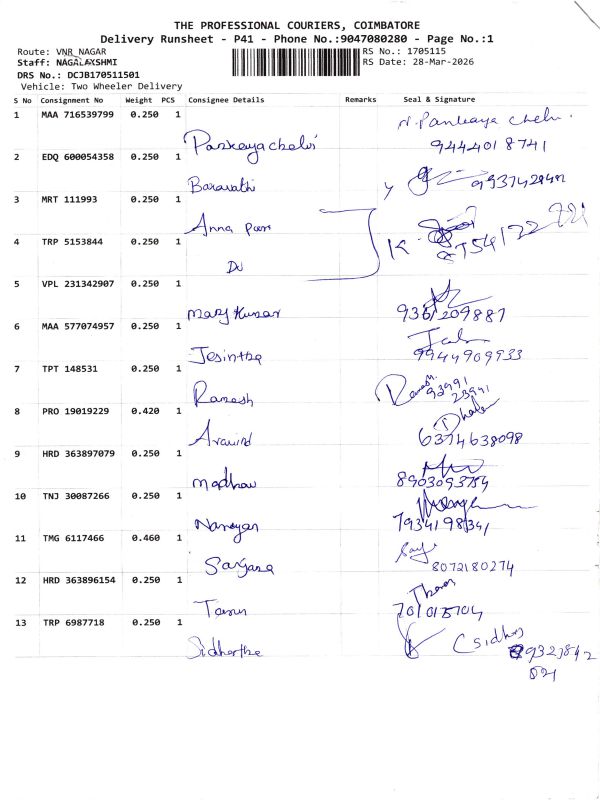 THE PROFESSIONAL COURIERS, COIMBATORE
Delivery Runsheet - P41 - Phone No.:9047080280 - Page No.:1
Route: VNR NAGAR
RS No.: 1705115
Staff: NAGALAKSHMI
RS Date: 28-Mar-2026
DRS No.: DCJB170511501
Vehicle: Two Wheeler Delivery
S No Consignment No Weight PCS Consignee Details Remarks Seal & Signature
1 MAA 716539799 0.250 1
9444018741
2 EDQ 600054358 0.250 1
Baravathi
3 MRT 111993 0.250 1
Anna
4 TRP 5153844 0.250 1
Do
5 VPL 231342907 0.250 1
Kumar
9361209887
6 MAA 577074957 0.250 1
Jesintha
9944909933
7 TPT 148531 0.250 1
Ramesh
Ramesh
93991
23941
8 PRO 19019229 0.420 1
Aravind
6374638098
9 HRD 363897079 0.250 1
Madhav
8903093754
10 TNJ 30087266 0.250 1
Narayan
7934198341
11 TMG 6117466 0.460 1
Sanjana
8072180274
12 HRD 363896154 0.250 1
Tarun
13 TRP 6987718 0.250 1